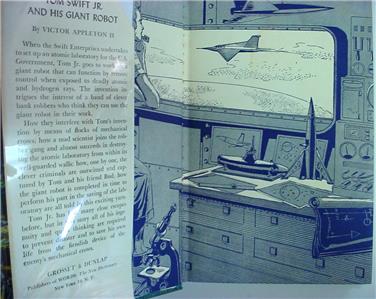 TOM SWIFT JR.
AND HIS GIANT ROBOT
By VICTOR APPLETON II
When the Swift Enterprises undertakes
to set up an atomic laboratory for the U.S.
Government, Tom Jr. goes to work on a
giant robot that can function by remote
control when exposed to deadly atomic
and hydrogen rays. The invention in-
trigues the interest of a band of clever
bank robbers who think they can use the
giant robot in their work.
How they interfere with Tom's inven-
tion by means of flocks of mechanical
crows; how a mad scientist joins the rob-
ber gang and almost succeeds in destroy-
ing the atomic laboratory from within its
well-guarded walls; how, one by one, the
clever criminals are outwitted and cap-
tured by Tom and his friend Bud; how
the giant robot is completed in time to
perform his part in the saving of the lab-
oratory are all told by this exciting yarn.
Tom Jr. has had many close escapes
before, but in this story all of his inge-
nuity and quick thinking are required
to prevent disaster and to save his own
life from the fiendish device of the
enemy's mechanical crows.
GROSSET & DUNLAP
Publishers of WORDS: The New Dictionary
New York 10, N. Y.